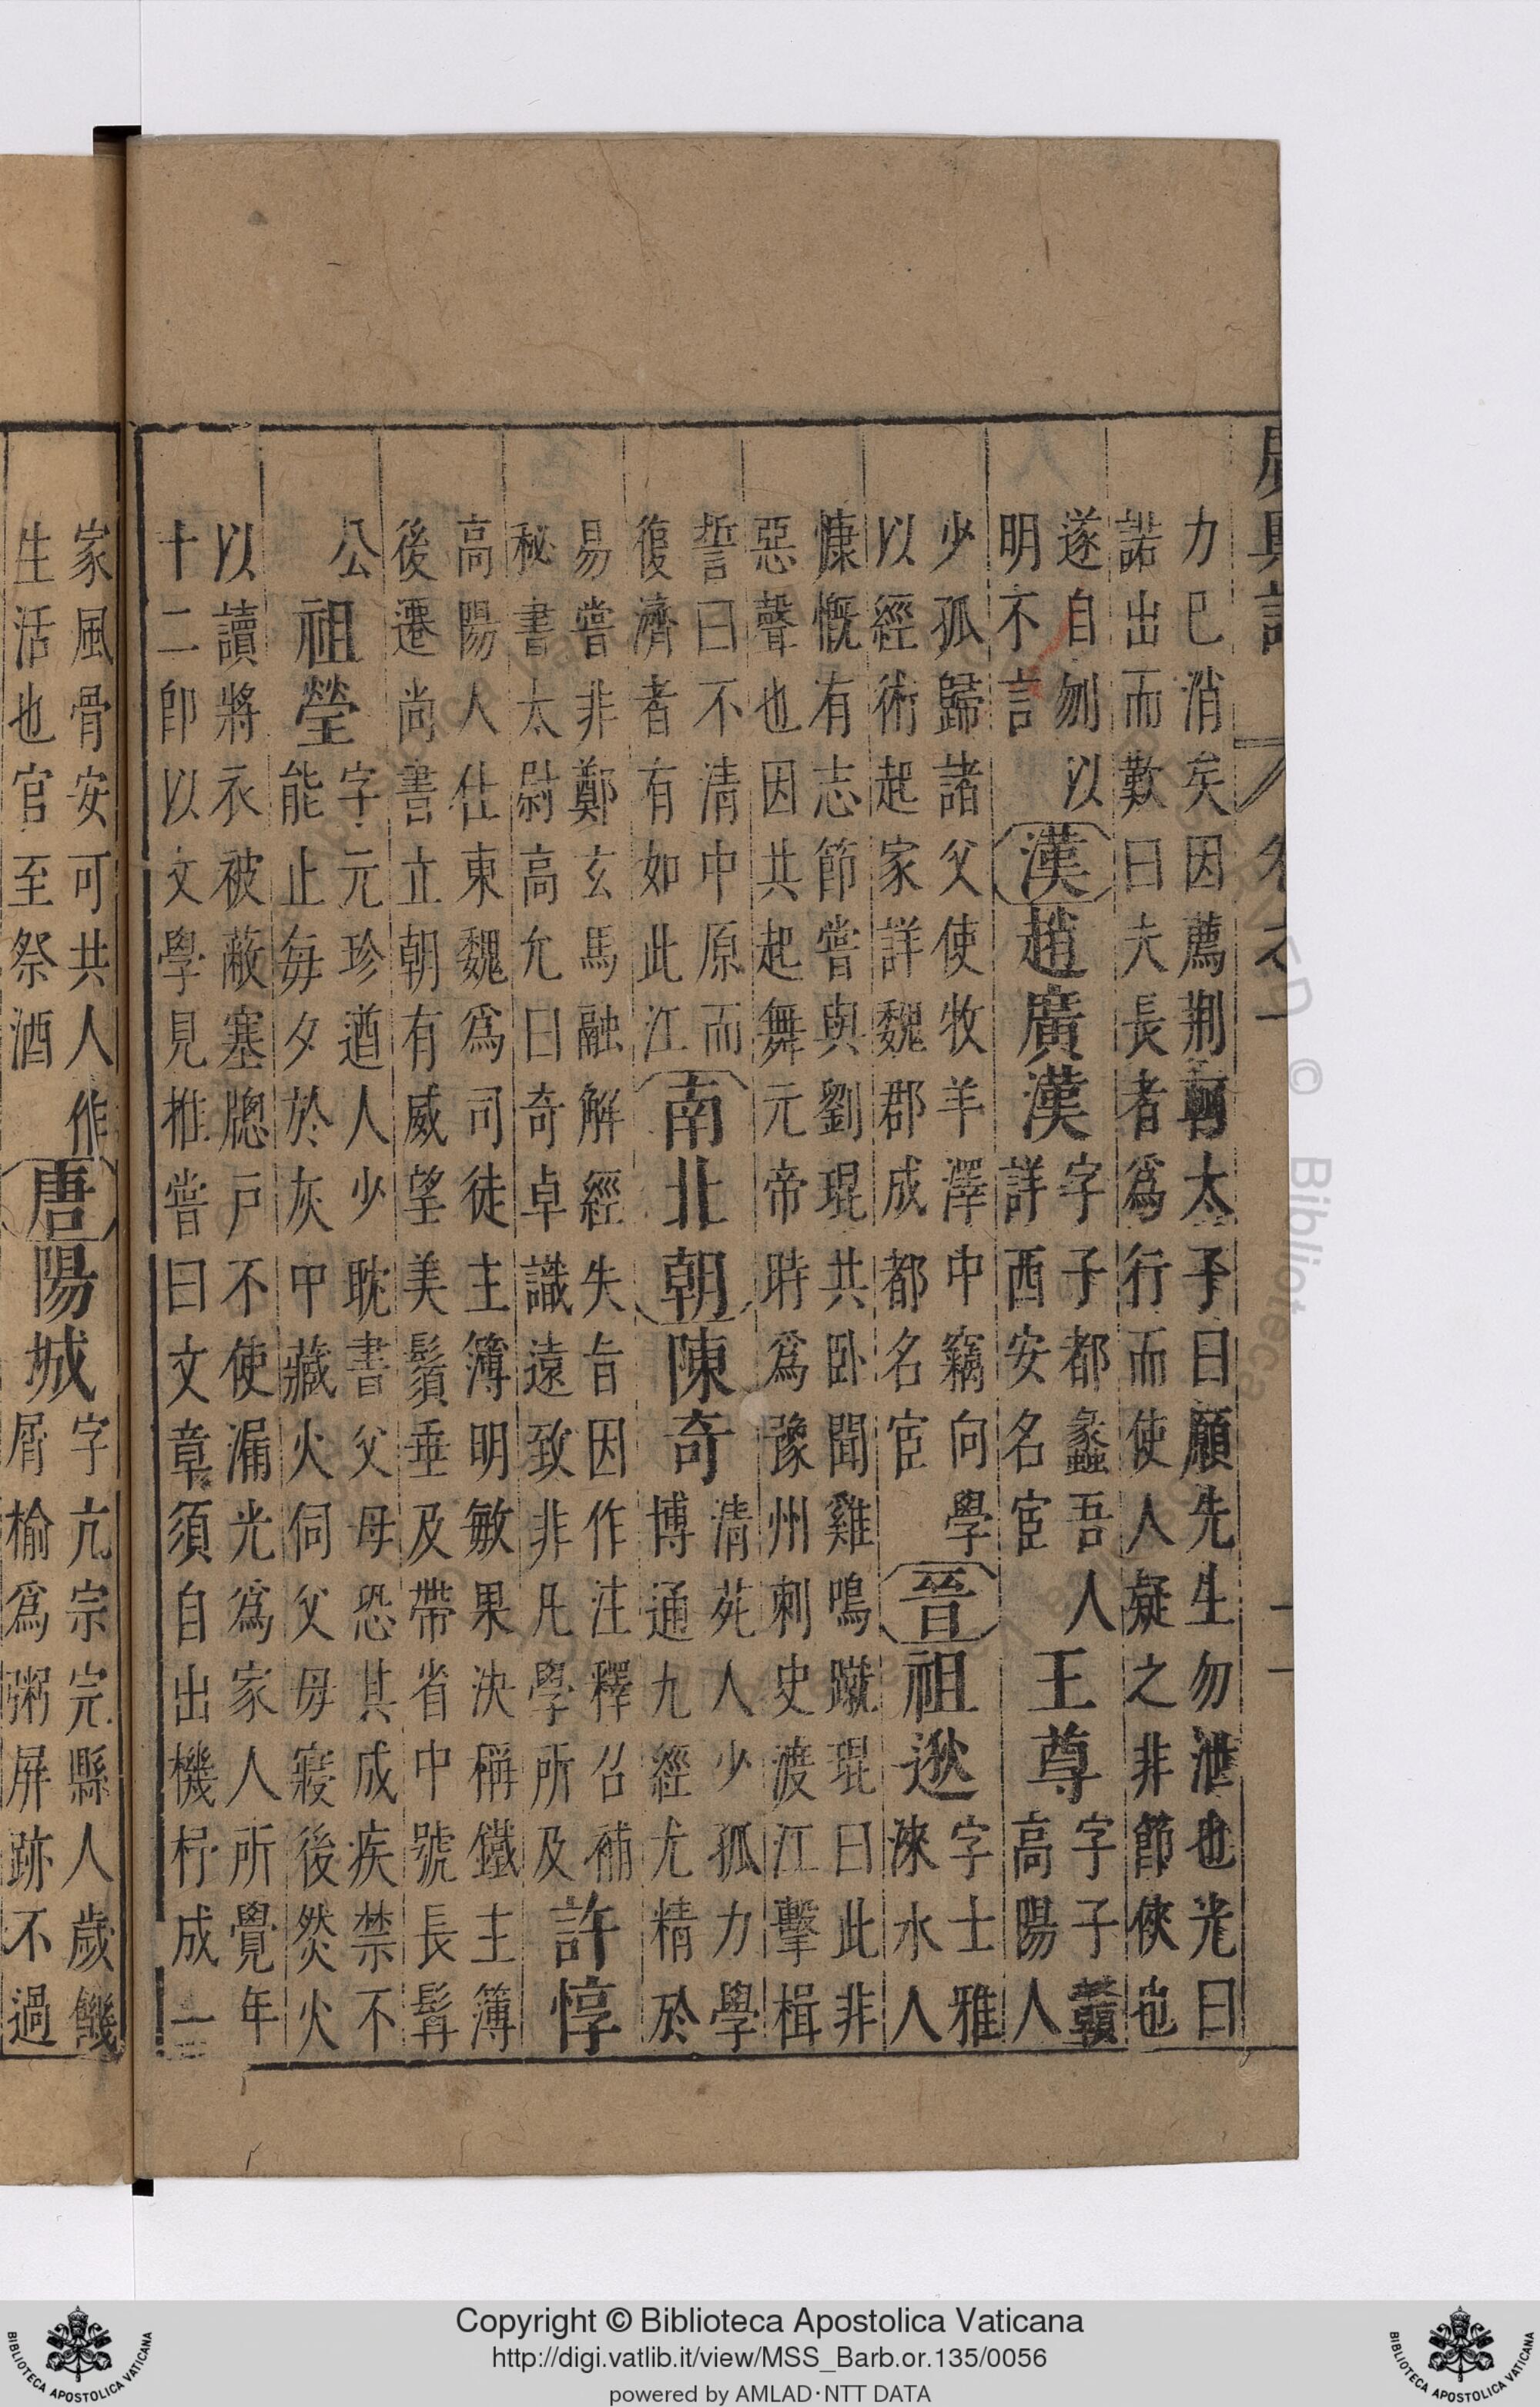 廣輿記 卷之一
力已消矣因薦荆軻太子曰願先生勿泄也光曰
諾出而歎曰夫長者爲行而使人疑之非節俠也
遂自刎以
明不言
漢 趙廣漢
字子都蠡吾人
詳西安名宦
王尊
字子贛
高陽人
少孤歸諸父使牧羊澤中竊向學
以經術起家詳魏郡成都名宦
晉 祖逖
字士雅
淶水人
慷慨有志節嘗與劉琨共卧聞雞鳴蹴琨曰此非
惡聲也因共起舞元帝時爲豫州刺史渡江擊楫
誓曰不清中原而
復濟者有如此江
南北朝 陳奇
清苑人少孤力學
博通九經尤精於
易嘗非鄭玄馬融解經失旨因作注釋召補
秘書太尉高允曰奇卓識遠致非凡學所及
許惇
高陽人仕東魏爲司徒主簿明敏果決稱鐵主簿
後遷尚書立朝有威望美鬚垂及帶省中號長髯
公
祖瑩
字元珍遒人少耽書父母恐其成疾禁不
能止每夕於灰中藏火伺父母寢後燃火
以讀將衣被蔽塞牕戶不使漏光爲家人所覺年
十二卽以文學見推嘗曰文章須自出機杼成一
家風骨安可共人作
生活也官至祭酒
唐 陽城
字亢宗完縣人歲饑
屑榆爲粥屏跡不過
Copyright © Biblioteca Apostolica Vaticana
http://digi.vatlib.it/view/MSS_Barb.or.135/0056
powered by AMLAD·NTT DATA
BIBLIOTECA APOSTOLICA VATICANA
BIBLIOTECA APOSTOLICA VATICANA